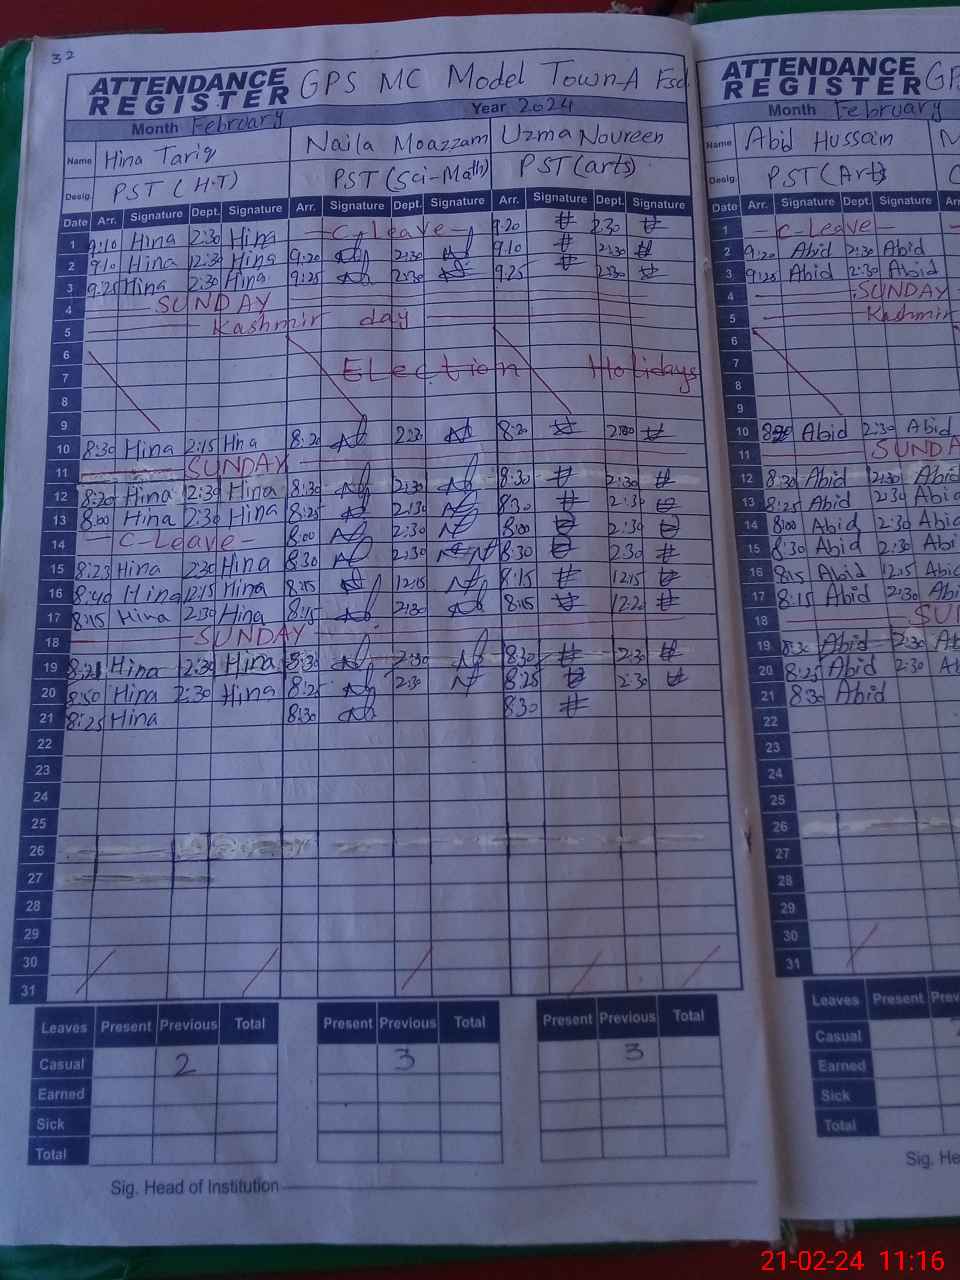 32
ATTENDANCE REGISTER GPS MC Model Town-A Fsd
Month February Year 2024
Name Hina Tariq Naila Moazzam Uzma Noureen
Desig. PST (H.T) PST (Sci-Math) PST (arts)
Date Arr. Signature Dept. Signature Arr. Signature Dept. Signature Arr. Signature Dept. Signature
1 9:10 Hina 2:30 Hina -C-leave- 9.20 2.30
2 9:10 Hina 2:30 Hina 9:20 2:30 9.10 2:30
3 9.25 Hina 2:30 Hina 9:25 2:30 9.25 2:30
4 SUNDAY
5 Kashmir day
6
7 Election Holidays
8
9
10 8:30 Hina 2:15 Hina 8:20 2:30 8:20
11 SUNDAY
12 8:20 Hina 2:30 Hina 8:30 2:30 8:30 2:30
13 8:00 Hina 2:30 Hina 8:25 2:30 8:30 2:30
14 - C-Leave - 8:00 2:30 8:00 2:30
15 8:23 Hina 2:30 Hina 8:30 2:30 8:30 2:30
16 8:40 Hina 12:15 Hina 8:15 12:15 8:15 12:15
17 8:15 Hina 2:30 Hina 8:15 2:30 8:15 12:20
18 SUNDAY
19 8:21 Hina 2:30 Hina 8:30 2:30 8:30 2:30
20 8:50 Hina 2:30 Hina 8:25 2:30 8:25 2:30
21 8:25 Hina 8:30 8:30
22
23
24
25
26
27
28
29
30
31
Leaves Present Previous Total Present Previous Total Present Previous Total
Casual 2 3 3
Earned
Sick
Total
Sig. Head of Institution
ATTENDANCE REGISTER
Month February
Name Abid Hussain
Desig. PST (Arts)
Date Arr. Signature Dept. Signature
1 -C-Leave-
2 9:20 Abid 2:30 Abid
3 9:25 Abid 2:30 Abid
4 SUNDAY
5 Kashmir
6
7
8
9
10 Abid 2:30 Abid
11 SUNDA
12 8:30 Abid 2:30 Abid
13 8:25 Abid 2:30 Abid
14 8:00 Abid 2:30 Abid
15 8:30 Abid 2:30 Abi
16 8:15 Abid 12:15 Abid
17 8:15 Abid 2:30 Abid
18 SU
19 8:30 Abid 2:30 Ab
20 8:25 Abid 2:30 Ab
21 8:30 Abid
22
23
24
25
26
27
28
29
30
31
Leaves Present
Casual
Earned
Sick
Total
21-02-24 11:16